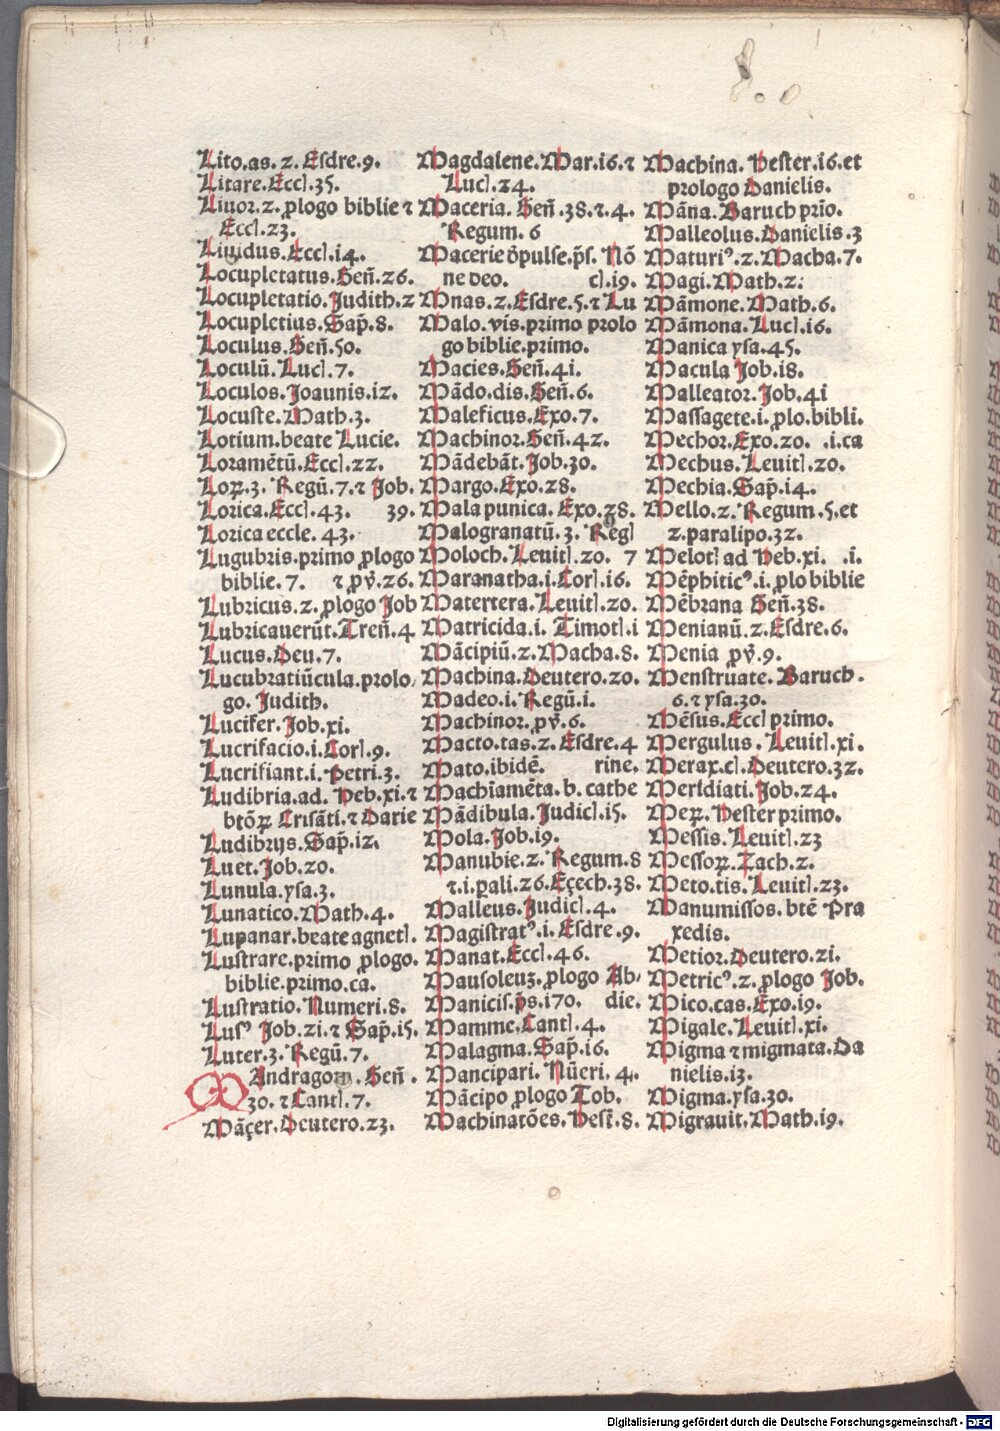 Lito.as.2.Esdre.9.
Litare.Eccl.35.
Liuor.2.ꝓlogo biblie ⁊
Eccl.23.
Liuidus.Eccl.14.
Locupletatus.Geñ.26.
Locupletatio.Judith.2
Locupletius.Sap̄.8.
Loculus.Geñ.50.
Loculū.Lucl.7.
Loculos.Joannis.12.
Locuste.Math.3.
Lotium.beate Lucie.
Loramētū.Eccl.22.
Loꝝ.3.Regū.7.⁊ Job.
Lorica.Eccl.43. 39.
Lorica eccle.43.
Lugubris.primo ꝓlogo
biblie.7. ⁊ pṽ.26.
Lubricus.2.ꝓlogo Job
Lubricauerūt.Treñ.4
Lucus.Deu.7.
Lucubratiūcula.prolo/
go.Judith.
Lucifer.Job.xi.
Lucrifacio.i.Corl.9.
Lucrifiant.i.Petri.3.
Ludibria.ad.Heb.xi.⁊
btōꝝ Crisāti.⁊ Darie
Ludibrijs.Sap̄.12.
Luet.Job.20.
Lunula.ysa.3.
Lunatico.Math.4.
Lupanar.beate agnetl.
Lustrare.primo ꝓlogo.
biblie.primo.ca.
Lustratio.Numeri.8.
Lusꝰ Job.21.⁊ Sap̄.15.
Luter.3.Regū.7.
MAndragore.Geñ.
30.⁊ Cantl.7.
Māçer.Deutero.23.
Magdalene.Mar.16.⁊
Lucl.24.
Maceria.Geñ.38.⁊.4.
Regum.6
Macerie ꝺpulse.p̄s.Nō
ne deo. cl.19.
Mnas.2.Esdre.5.⁊ Lu
Malo.vis.primo prolo
go biblie.primo.
Macies.Geñ.41.
Mādo.dis.Geñ.6.
Maleficus.Exo.7.
Machinor.Geñ.42.
Mādebāt.Job.30.
Margo.Exo.28.
Mala punica.Exo.28.
Malogranatū.3.Regl
Moloch.Leuitl.20. 7
Maranatha.i.Corl.16.
Matertera.Leuitl.20.
Matricida.i.Timotl.i
Mācipiū.2.Macha.8.
Machina.Deutero.20.
Madeo.i.Regū.i.
Machinor.pṽ.6.
Macto.tas.2.Esdre.4
Mato.ibidē. rine.
Machīamēta.b.cathe
Mādibula.Judicl.15.
Mola.Job.19.
Manubie.2.Regum.8
⁊.i.pali.26.Eçech.38.
Malleus.Judicl.4.
Magistratꝰ.i.Esdre.9.
Manat.Eccl.46.
Mausoleuʒ.ꝓlogo Ab/
Manicis.p̄s.170. die.
Mamme.Cantl.4.
Malagma.Sap̄.16.
Mancipari.Nūeri.4.
Mācipo ꝓlogo Tob.
Machinatōes.Hest.8.
Machina.Hester.16.et
prologo Danielis.
Māna.Baruch prīo.
Malleolus.Danielis.3
Maturiꝰ.2.Macha.7.
Magi.Math.2.
Māmone.Math.6.
Māmona.Lucl.16.
Manica ysa.45.
Macula Job.18.
Malleator.Job.41
Massagete.i.ꝓlo.bibli.
Mechor.Exo.20. .i.ca
Mechus.Leuitl.20.
Mechia.Sap̄.14.
Mello.2.Regum.5.et
2.paralipo.32.
Melotl ad Heb.xi. .i.
Mēphiticꝰ.i.ꝓlo biblie
Mēbrana Geñ.38.
Menianū.2.Esdre.6.
Menia pṽ.9.
Menstruate.Baruch.
6.⁊ ysa.30.
Mēsus.Eccl primo.
Mergulus.Leuitl.xi.
Merax.cl.Deutero.32.
Meridiati.Job.24.
Meꝝ.Hester primo.
Messis.Leuitl.23
Messoꝝ.Zach.2.
Meto.tis.Leuitl.23.
Manumissos.btē Pra
xedis.
Metior.Deutero.21.
Metricꝰ.2.ꝓlogo Job.
Mico.cas.Exo.19.
Migale.Leuitl.xi.
Migma ⁊ migmata.Da
nielis.13.
Migma.ysa.30.
Migrauit.Math.19.
Digitalisierung gefördert durch die Deutsche Forschungsgemeinschaft - DFG